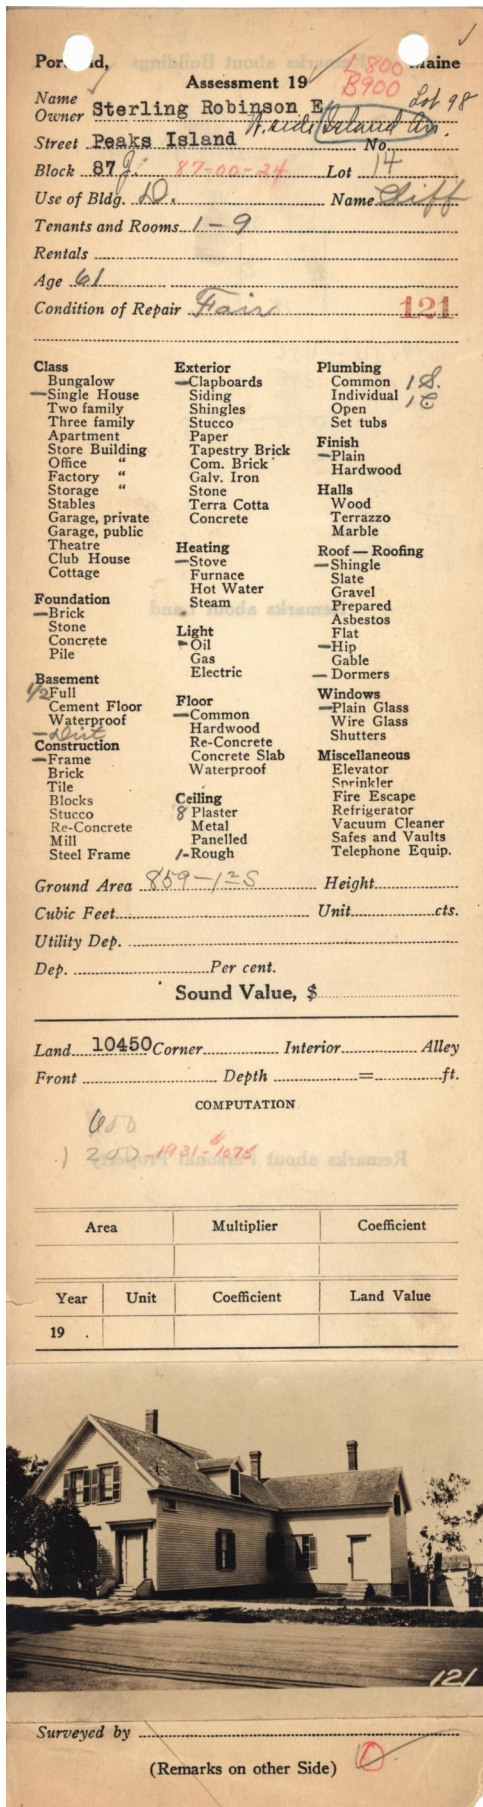 Portland, Maine
Assessment 19
L800
B900
Lot 98
Name
Owner Sterling Robinson E
N. side Island Av.
Street Peaks Island No.
Block 87 J. 87-00-24 Lot 14
Use of Bldg. D. Name Cliff
Tenants and Rooms 1-9
Rentals
Age 61
Condition of Repair Fair 121
Class
Bungalow
Single House
Two family
Three family
Apartment
Store Building
Office "
Factory "
Storage "
Stables
Garage, private
Garage, public
Theatre
Club House
Cottage
Foundation
Brick
Stone
Concrete
Pile
Basement
1/2 Full
Cement Floor
Waterproof
- Dirt
Construction
Frame
Brick
Tile
Blocks
Stucco
Re-Concrete
Mill
Steel Frame
Exterior
Clapboards
Siding
Shingles
Stucco
Paper
Tapestry Brick
Com. Brick
Galv. Iron
Stone
Terra Cotta
Concrete
Heating
Stove
Furnace
Hot Water
Steam
Light
Oil
Gas
Electric
Floor
Common
Hardwood
Re-Concrete
Concrete Slab
Waterproof
Ceiling
8 Plaster
Metal
Panelled
1- Rough
Plumbing
Common 1 S.
Individual 1 C
Open
Set tubs
Finish
Plain
Hardwood
Halls
Wood
Terrazzo
Marble
Roof — Roofing
Shingle
Slate
Gravel
Prepared
Asbestos
Flat
Hip
Gable
Dormers
Windows
Plain Glass
Wire Glass
Shutters
Miscellaneous
Elevator
Sprinkler
Fire Escape
Refrigerator
Vacuum Cleaner
Safes and Vaults
Telephone Equip.
Ground Area 859-1 2 S Height
Cubic Feet Unit cts.
Utility Dep.
Dep. Per cent.
Sound Value, $
Land 10450 Corner Interior Alley
Front Depth = ft.
COMPUTATION
600
1 200 -1931-$1075
Area Multiplier Coefficient
Year Unit Coefficient Land Value
19 .
121
Surveyed by
(Remarks on other Side)